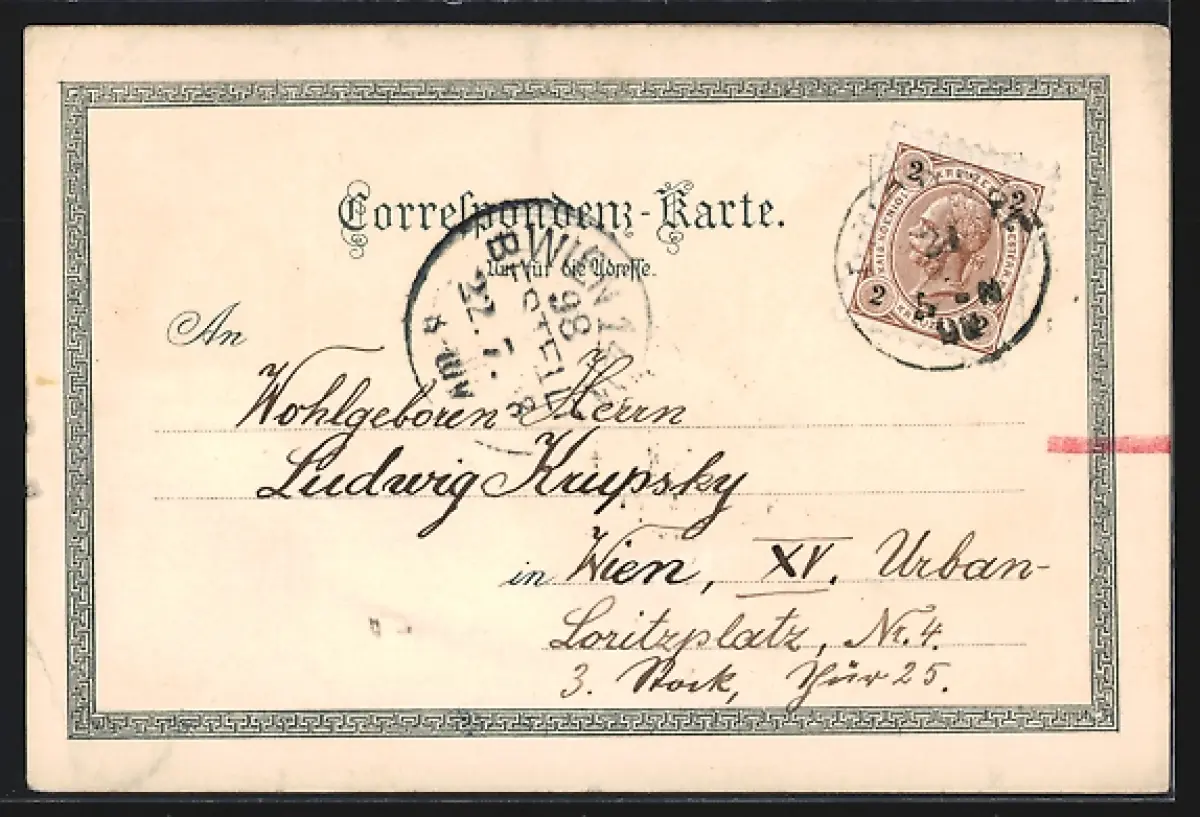 Correspondenz-Karte.
Nur für die Adresse.
2 2
2 2
WIEN 1
BESTELLT
22. 7. 98
An
Wohlgeboren Herrn
Ludwig Krupsky
in Wien, XV. Urban-
Loritzplatz, Nr. 4.
3. Stock, Thür 25.